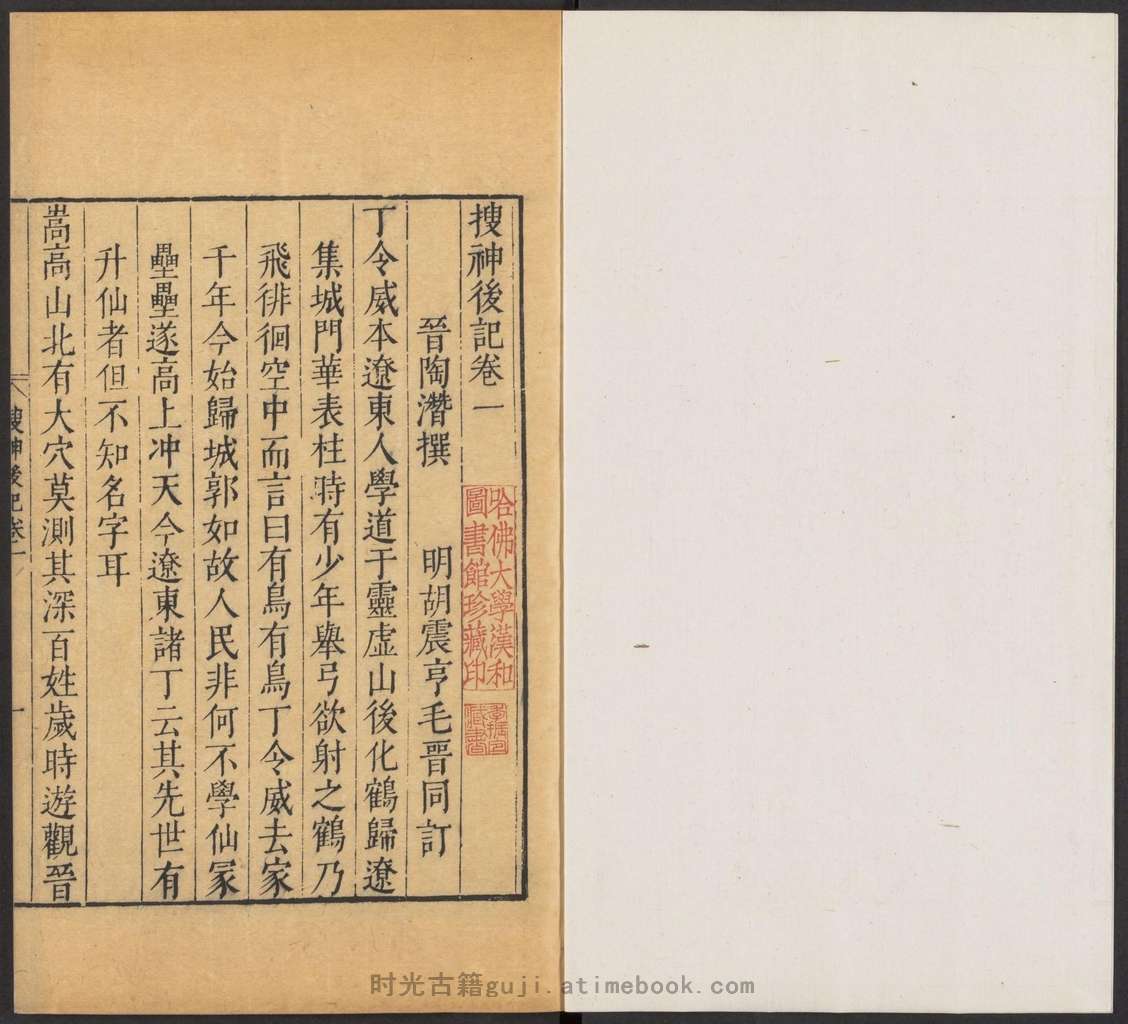 搜神後記卷一
晉陶潛撰 明胡震亨毛晉同訂
丁令威本遼東人學道于靈虛山後化鶴歸遼
集城門華表柱時有少年舉弓欲射之鶴乃
飛徘徊空中而言曰有鳥有鳥丁令威去家
千年今始歸城郭如故人民非何不學仙冢
壘壘遂高上冲天今遼東諸丁云其先世有
升仙者但不知名字耳
嵩高山北有大穴莫測其深百姓歲時遊觀晉
搜神後記卷一
一
哈佛大學漢和
圖書館珍藏印
时光古籍guji.atimebook.com